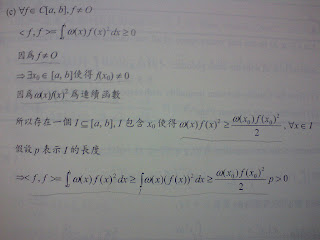 (c) ∀f∈ C[a, b], f ≠ O
< f, f >= ∫ₐᵇ ω(x) f(x)² dx ≥ 0
因為 f ≠ O
⇒ ∃x₀ ∈ [a, b] 使得 f(x₀) ≠ 0
因為 ω(x)f(x)² 為連續函數
所以存在一個 I ⊆ [a, b], I 包含 x₀ 使得 ω(x) f(x)² ≥ ω(x₀) f(x₀)² / 2 , ∀x ∈ I
假設 p 表示 I 的長度
⇒< f, f >= ∫ₐᵇ ω(x) f(x)² dx ≥ ∫_I ω(x)(f(x))² dx ≥ ω(x₀) f(x₀)² / 2 p > 0